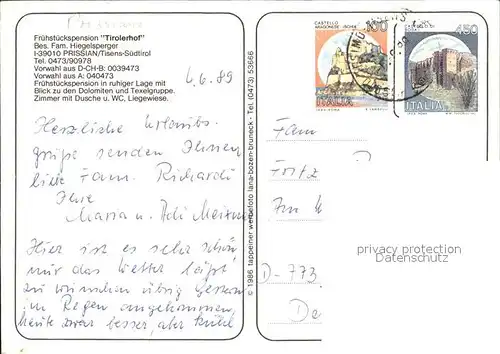 Prissian
Frühstückspension "Tirolerhof"
Bes. Fam. Hiegelsperger
I-39010 PRISSIAN/Tisens-Südtirol
Tel. 0473/90978
Vorwahl aus D-CH-B: 0039473
Vorwahl aus A: 040473
Frühstückspension in ruhiger Lage mit
Blick zu den Dolomiten und Texelgruppe.
Zimmer mit Dusche u. WC, Liegewiese.
4.6.89
Herzliche Urlaubs-
grüße senden Ihnen
liebe Fam. Richardi
Ihre
Maria u.
Hier ist es sehr schön
nur das Wetter läßt
zu wünschen übrig Gestern
im Regen angekommen,
heute zwar besser, aber kühl
© 1986 tappeiner werbefoto lana-bozen-bruneck · Tel. (0473) 53666
CASTELLO
ARAGONESE - ISCHIA
ITALIA
450
ITALIA
Fam
Fritz
Im
D-773
privacy protection
Datenschutz